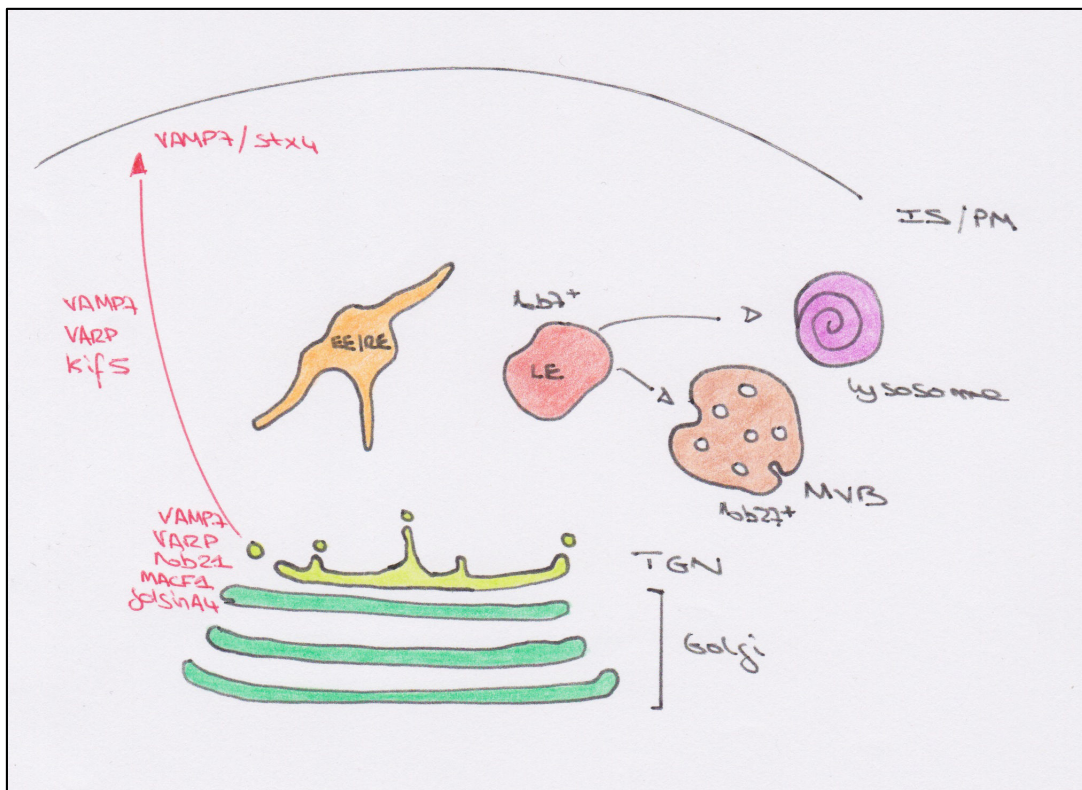 VAMP7/stx4
IS/PM
VAMP7
VARP
Kif5
EE/RE
Rab7+
LE
lysosome
MVB
Rab27+
VAMP7
VARP
Rab21
MACF1
golginA4
TGN
Golgi